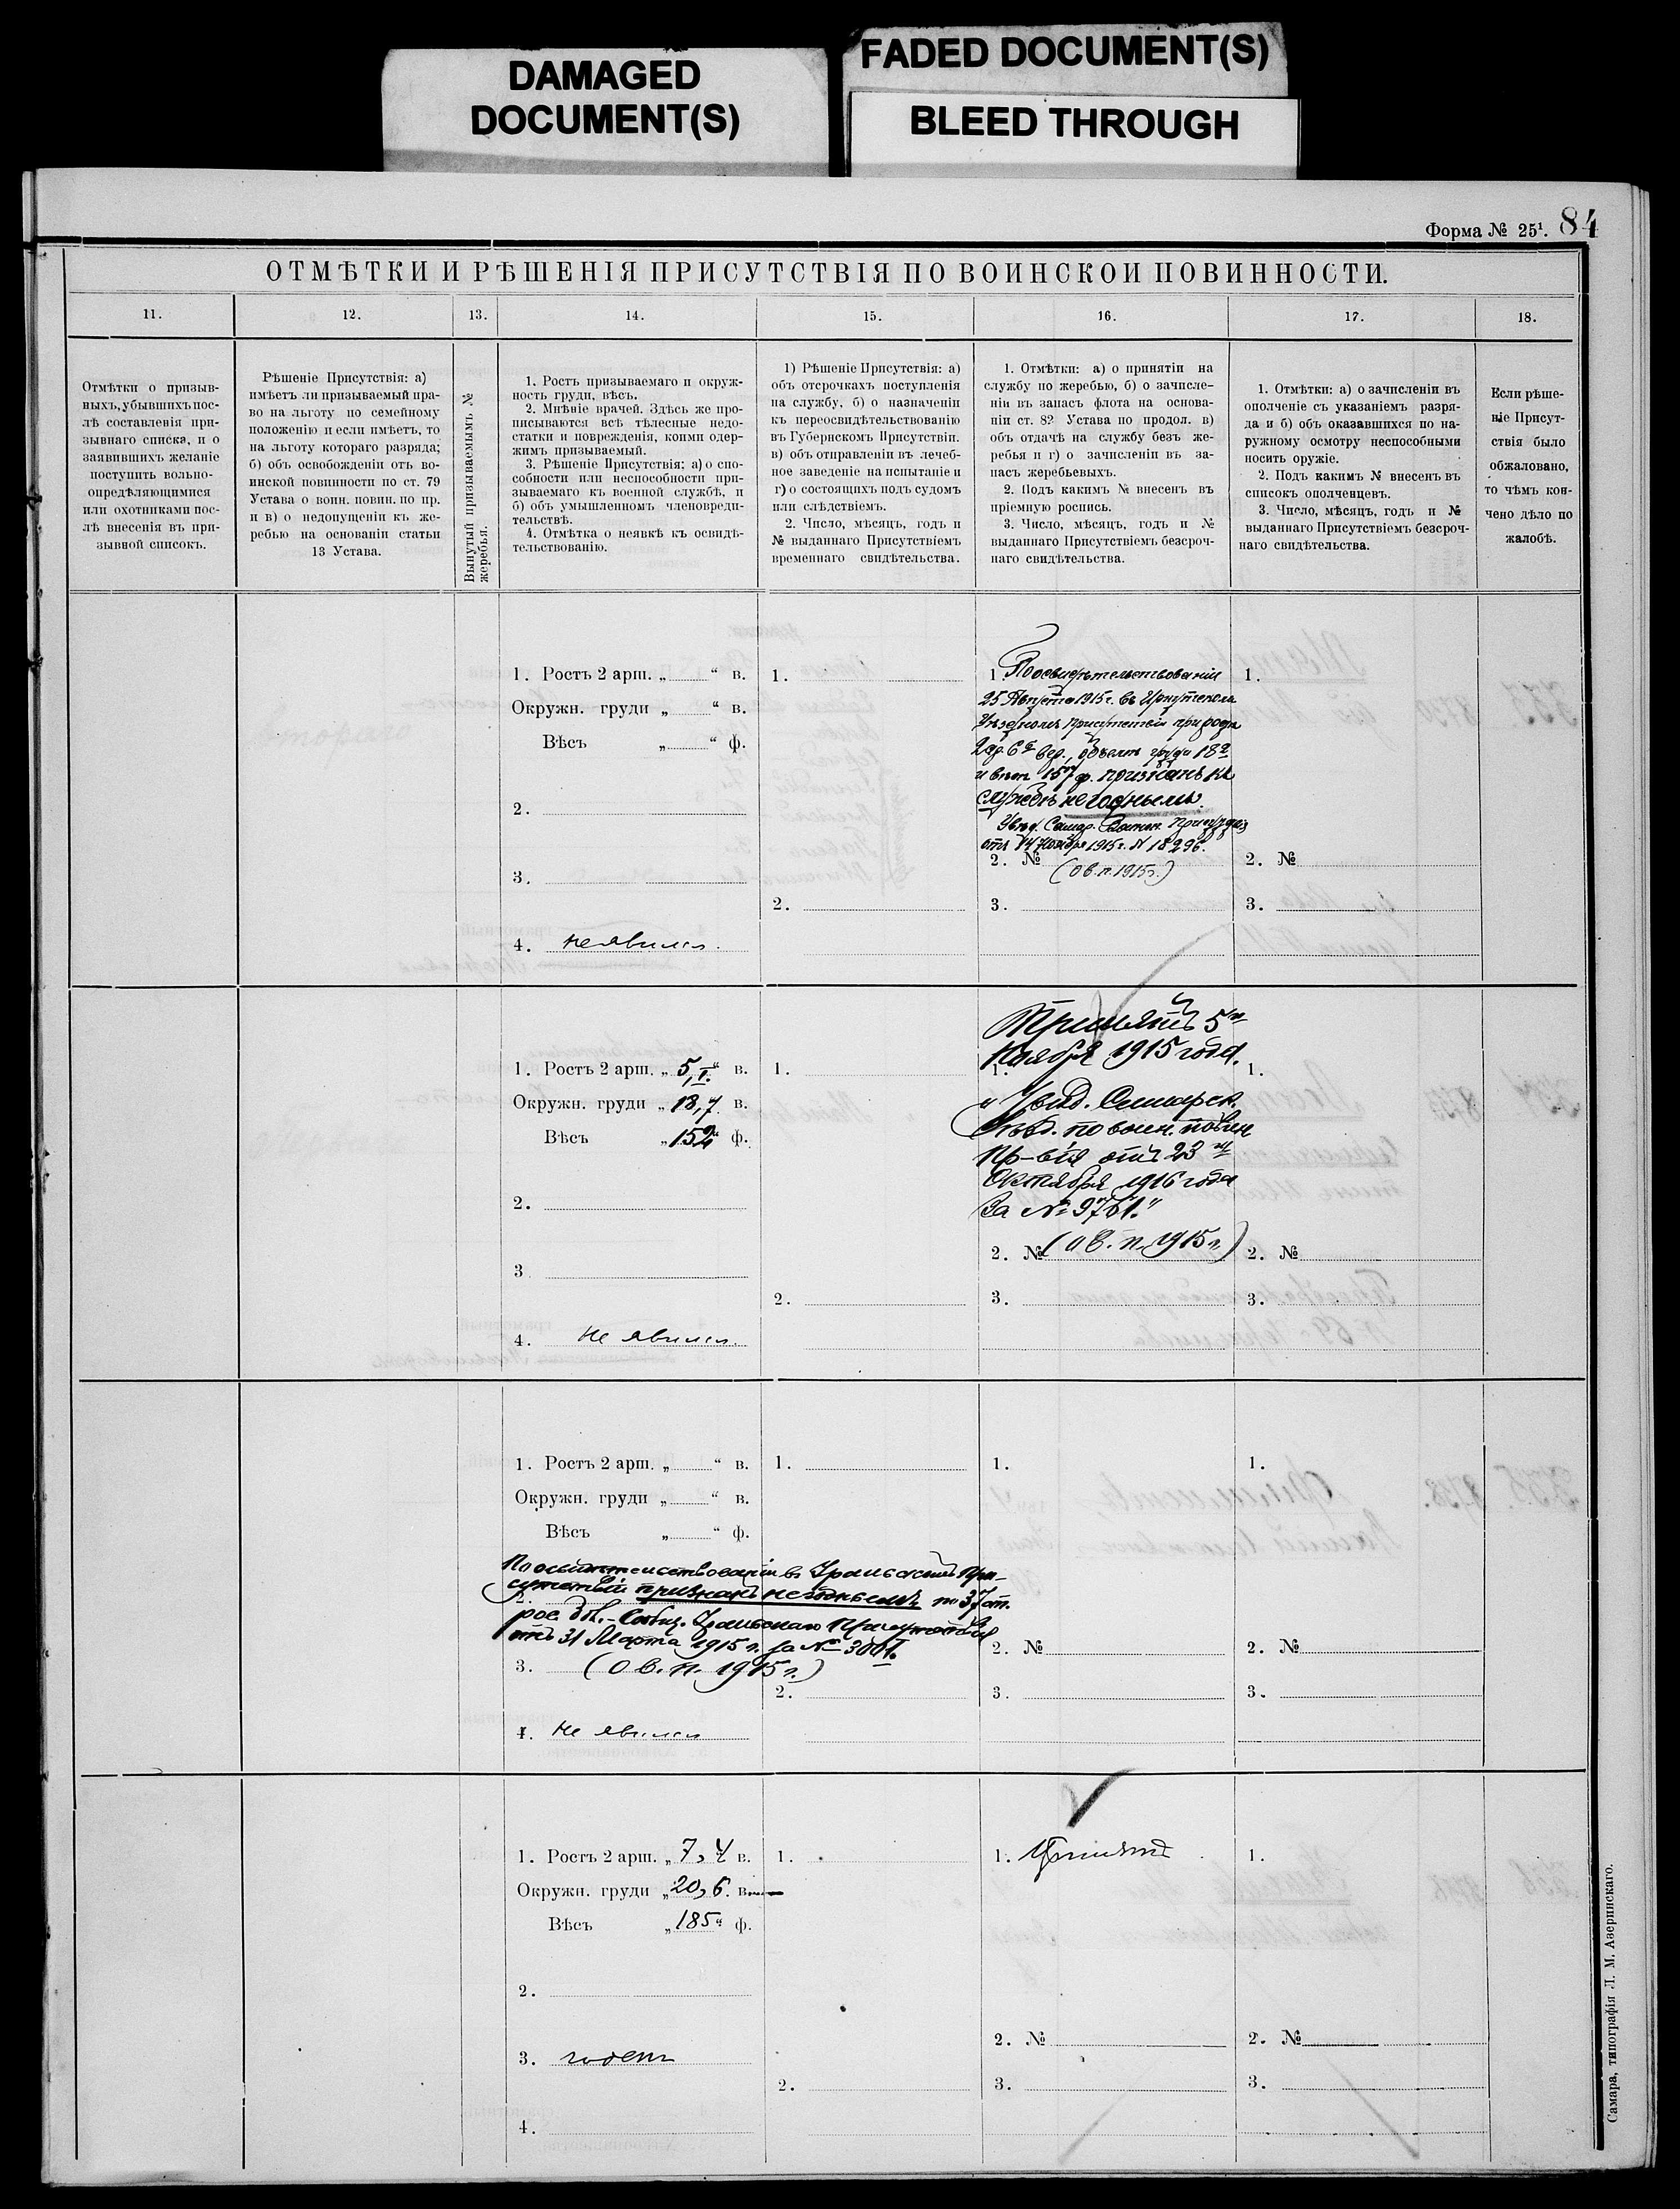 DAMAGED
DOCUMENT(S)
FADED DOCUMENT(S)
BLEED THROUGH
Форма № 25¹. 84
ОТМѢТКИ И РѢШЕНІЯ ПРИСУТСТВІЯ ПО ВОИНСКОИ ПОВИННОСТИ.
11. 12. 13. 14. 15. 16. 17. 18.
Отмѣтки о призыв-
ныхъ, убывшихъ пос-
лѣ составленія при-
зывнаго списка, и о
заявившихъ желаніе
поступить вольно-
опредѣляющимися
или охотниками пос-
лѣ внесенія въ при-
зывной списокъ.
Рѣшеніе Присутствія: а)
имѣетъ ли призываемый пра-
во на льготу по семейному
положенію и если имѣетъ, то
на льготу котораго разряда;
б) объ освобожденіи отъ во-
инской повинности по ст. 79
Устава о воин. повин. по пр.
и в) о недопущеніи къ же-
ребью на основаніи статьи
13 Устава.
Вынутый призываемымъ №
жеребья.
1. Ростъ призываемаго и окруж-
ность груди, вѣсъ.
2. Мнѣніе врачей. Здѣсь же про-
писываются всѣ тѣлесные недо-
статки и поврежденія, коими одер-
жимъ призываемый.
3. Рѣшеніе Присутствія; а) о спо-
собности или неспособности при-
зываемаго къ военной службѣ, и
б) объ умышленномъ членовреди-
тельствѣ.
4. Отмѣтка о неявкѣ къ освидѣ-
тельствованію.
1) Рѣшеніе Присутствія: а)
объ отсрочкахъ поступленія
на службу, б) о назначеніи
къ переосвидѣтельствованію
въ Губернскомъ Присутствіи.
в) объ отправленіи въ лечеб-
ное заведеніе на испытаніе и
г) о состоящихъ подъ судомъ
или слѣдствіемъ.
2. Число, мѣсяцъ, годъ и
№ выданнаго Присутствіемъ
временнаго свидѣтельства.
1. Отмѣтки: а) о принятіи на
службу по жеребью, б) о зачисле-
ніи въ запасъ флота на основа-
ніи ст. 82 Устава по продол. в)
объ отдачѣ на службу безъ же-
ребья и г) о зачисленіи въ за-
пасъ жеребьевыхъ.
2. Подъ какимъ № внесенъ въ
пріемную роспись.
3. Число, мѣсяцъ, годъ и №
выданнаго Присутствіемъ безсроч-
наго свидѣтельства.
1. Отмѣтки: а) о зачисленіи въ
ополченіе съ указаніемъ разря-
да и б) объ оказавшихся по на-
ружному осмотру неспособными
носить оружіе.
2. Подъ какимъ № внесенъ въ
списокъ ополченцевъ.
3. Число, мѣсяцъ, годъ и №
выданнаго Присутствіемъ безсроч-
наго свидѣтельства.
Если рѣше-
ніе Присут-
ствія было
обжаловано,
то чѣмъ кон-
чено дѣло по
жалобѣ.
1. Ростъ 2 арш. „ “ в.
Окружн. груди „ “ в.
Вѣсъ „ “ ф.
2.
3.
4. не явился.
1.
2.
1. По освидѣтельствованіи
25 Августа 1915 г. въ
Уѣздномъ Присутствіи при ростѣ
2 ар. 6 вер., объемѣ груди 18
и вѣсѣ 157 ф. признанъ къ
службѣ негоднымъ.
Увѣд. Самар. Воинск. Присутствія
отъ 14 Ноября 1915 г. № 18296.
2. № (о в. п. 1915 г.)
3.
1.
2. №
3.
1. Ростъ 2 арш. „ 5,1. “ в.
Окружн. груди „ 18,7 в.
Вѣсъ „ 152 ф.
2.
3
4. Не явился.
1.
2.
Принятъ 5го
Ноября 1915 года.
1.
Увѣд. Самарск.
Уѣзд. по воин. повин.
Пр-вія отъ 23го
Октября 1916 года
За № 9761."
2. № (о в. п. 1915 г.)
3.
1.
2. №
3.
1. Ростъ 2 арш. „ “ в.
Окружн. груди „ “ в.
Вѣсъ „ “ ф.
По освидѣтельствованіи въ Уральскомъ При-
сутствіи признанъ негоднымъ по 37 ст.
2. рос. – Сообщ. Уральскаго Присутствія
отъ 31 Марта 1915 г. за № 3001.
3. (о в. п. 1915 г.)
4. Не явился
1.
2.
1.
2. №
3.
1.
2. №
3.
1. Ростъ 2 арш. „ 7,4 в.
Окружн. груди „ 20,6. в
Вѣсъ „ 185 “ ф.
2.
3. годенъ
4.
1.
2.
1. Принятъ
2. №
3.
1.
2. №
3.
Самара, типографія Л. М. Азеринскаго.